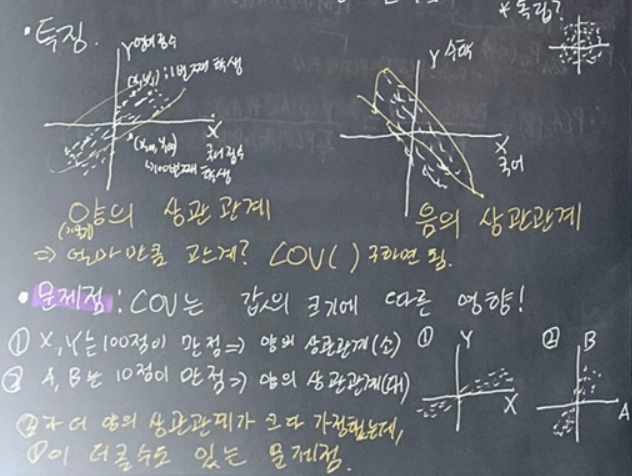 * 독립?
• 특징.
Y 영어 점수
(x₁, y₁) : 1번째 학생
X
국어 점수
(x₁₀₀, y₁₀₀)
100번째 학생
Y 수학
X
국어
양의 상관 관계
음의 상관관계
⇒ 얼마 만큼 관계? COV( ) 구하면 됨.
• 문제점 : COV는 값의 크기에 따른 영향!
① X, Y는 100점이 만점 ⇒ 양의 상관관계(소)
② A, B는 10점이 만점 ⇒ 양의 상관관계(대)
① Y
X
② B
A
②가 더 양의 상관관계가 크다 가정했는데,
①이 더 클수도 있는 문제점.